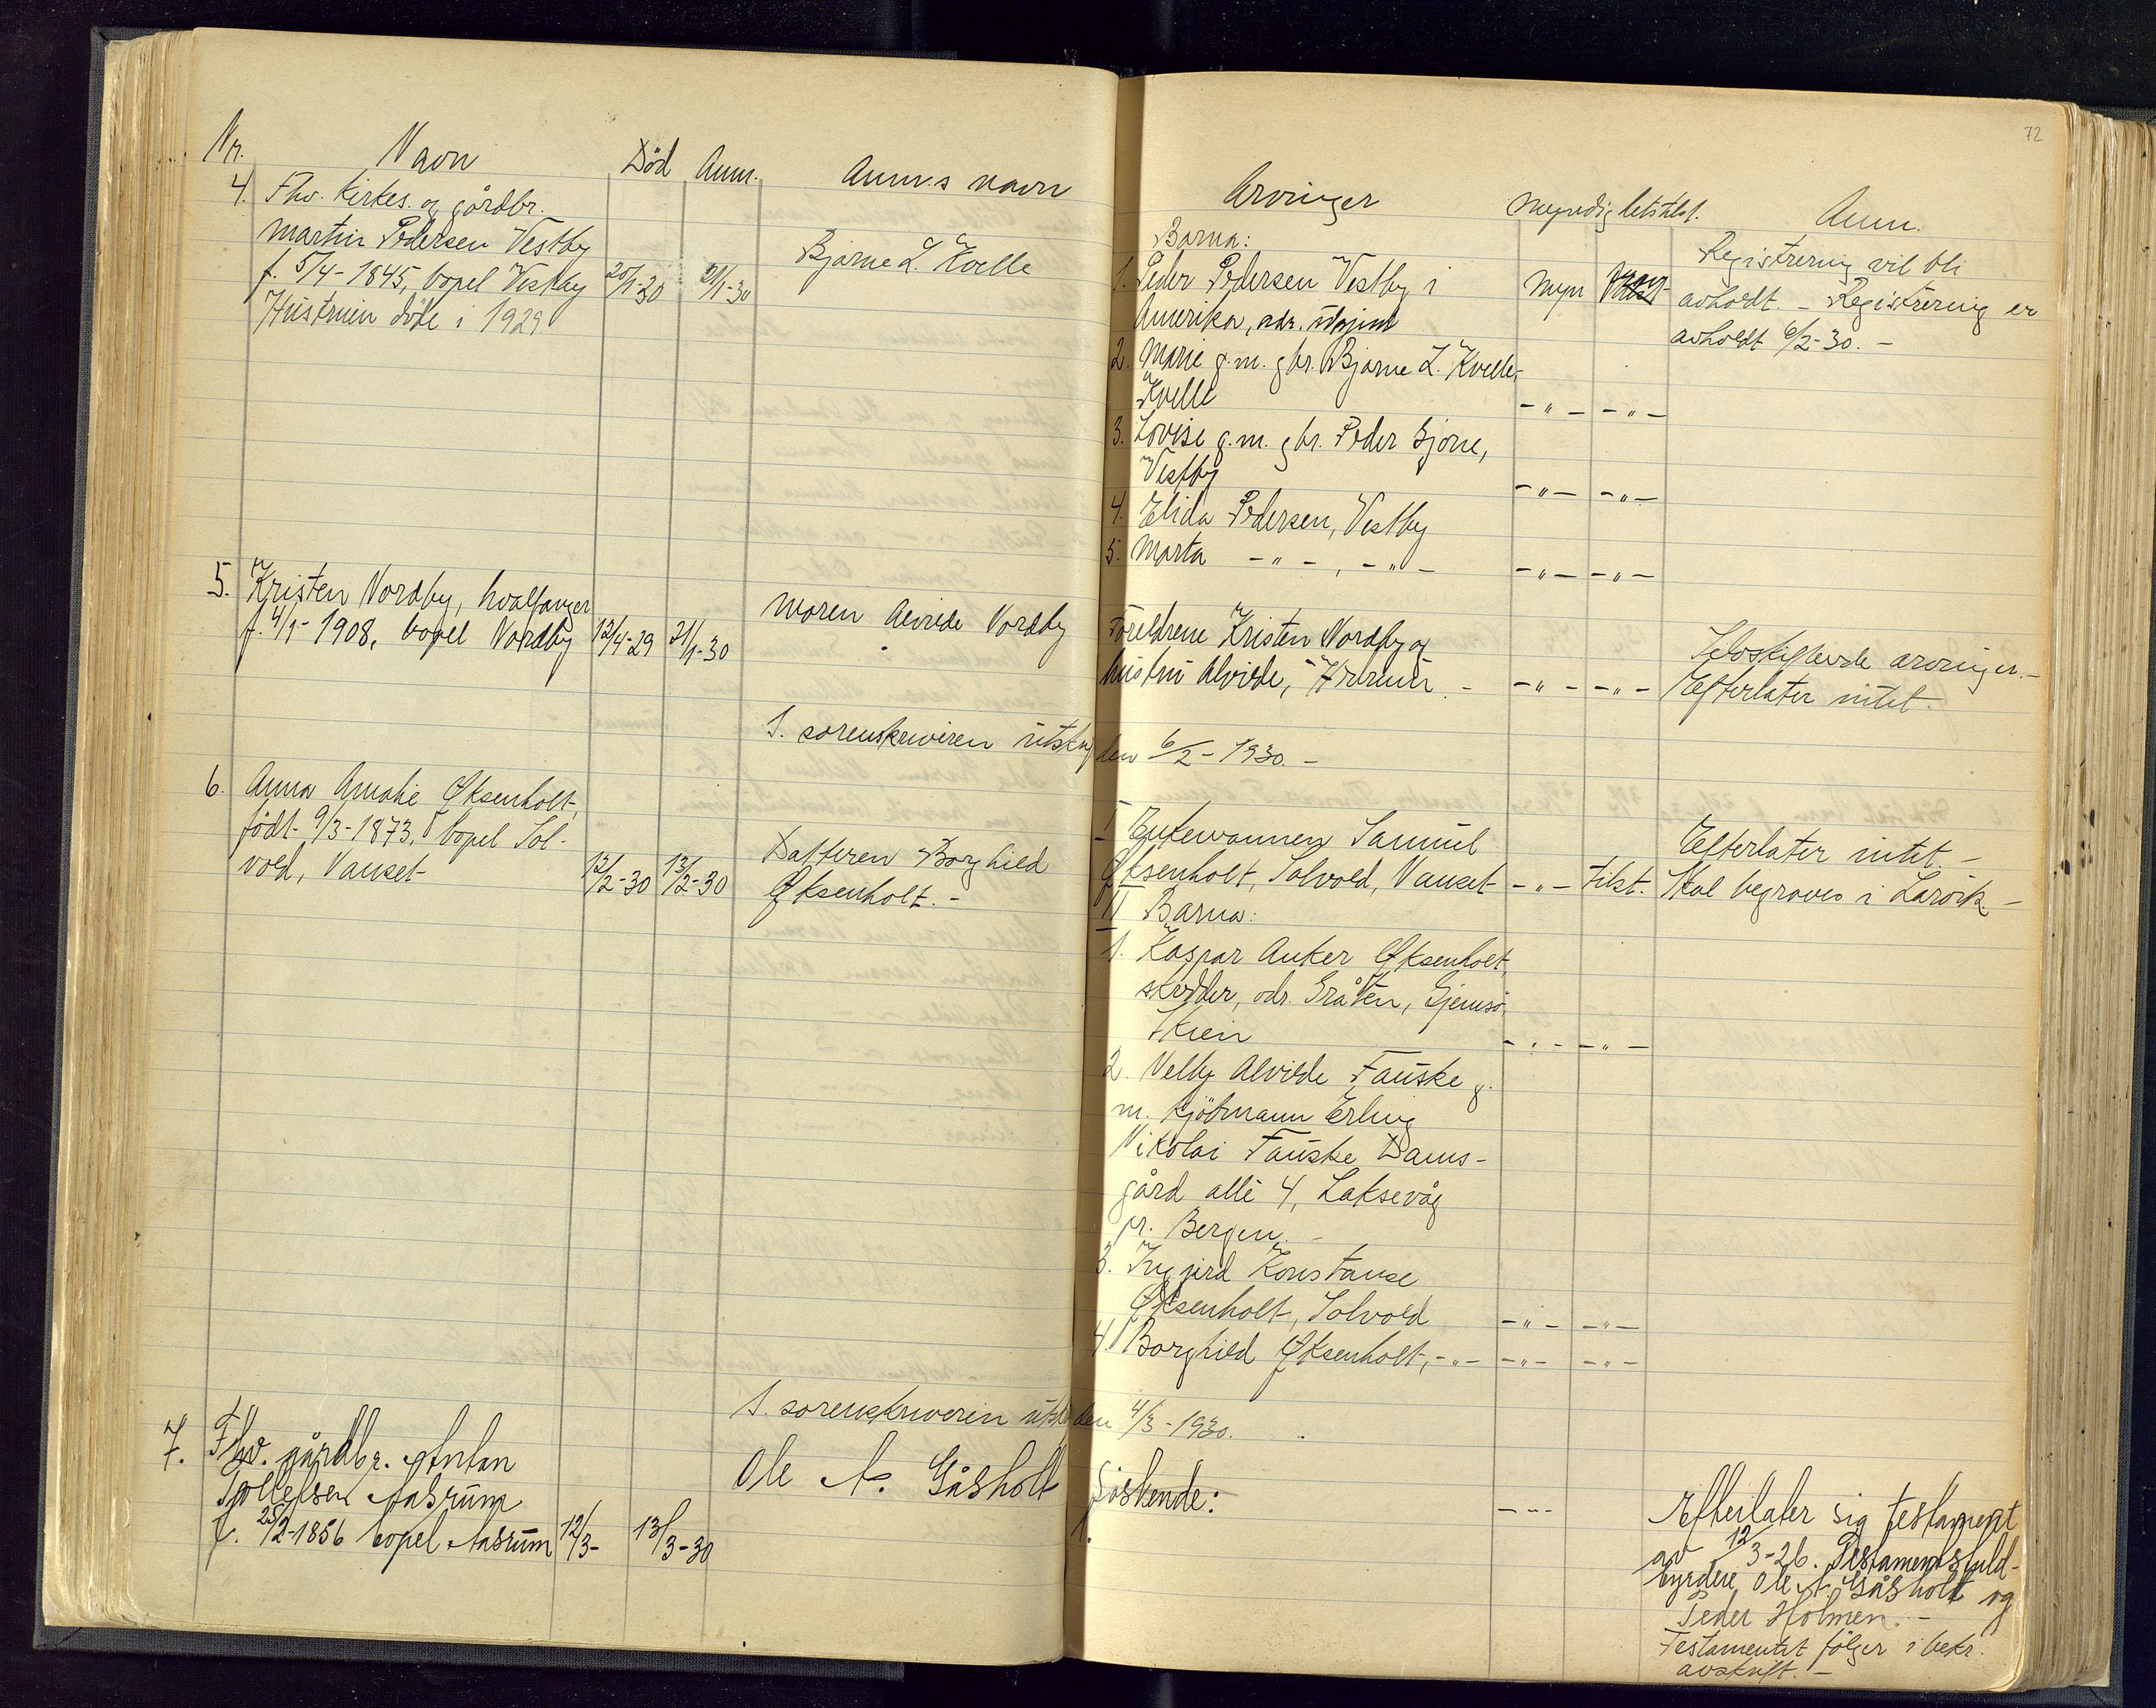 72
Nr. Navn Död Anm. Anm.s navn
4. Fhv. kirkes. og gårdbr.
Martin Pedersen Vestby
f. 5/4-1845, bopel Vestby 20/1-30 21/1-30 Bjarne L. Kvelle
Hustruen döde i 1929
5. Kristen Nordby, hvalfanger
f. 4/1-1908, bopel Nordby 12/4-29 21/1-30 Moren Alvilde Nordby
S. sorenskriveren utskr. den 6/2-1930. -
6. Anna Amalie Øksenholt,
födt 9/3-1873, bopel Sol-
vold, Nanset 12/2-30 13/2-30 Datteren Borghild
Øksenholt. -
S. sorenskriveren utskr. den 4/3-1930.
7. Fhv. gårdbr. Anton
Tollefsen Aasrum
f. 25/2-1856 bopel Aasrum 12/3- 13/3-30 Ole A. Gåsholt
Arvinger Myndighetstilst. Anm.
Barna:
1. Peder Pedersen Vestby i Mynd
Amerika, adr.
2. Marie g.m. gbr. Bjarne L. Kvelle,
Kvelle -"- -"-
3. Lovise g.m. gbr. Peder Bjone,
Vestby -"- -"-
4. Elida Pedersen, Vestby
5. Marta -"-, -"- -"- -"-
Registrering vil bli
avholdt. - Registrering er
avholdt 6/2-30. -
Foreldrene Kristen Nordby og
hustru Alvilde, - -"- -"-
Selvskiftende arvinger. -
Efterlater intet. -
I Enkemannen Samuel
Øksenholt, Solvold, Nanset -"- Tilst.
II Barna:
Efterlater intet. -
Skal begraves i Larvik. -
1. Kaspar Anker Øksenholt,
skredder, adr. Gråten, Gjemsö,
Skien -"- -"-
2. Velby Alvilde Fauske g.
m. kjöbmann Erling
Nikolai Fauske Dams-
gård allé 4, Laksevåg
pr. Bergen. -
3. Ingjerd Konstanse
Øksenholt, Solvold -"- -"-
4. Borghild Øksenholt, -"- -"- -"-
Söskende: -"-
1.
Efterlater sig testament
av 12/3-26. Testamentsfuld-
byrdere Ole A. Gåsholt og
Peder Holmen. -
Testamentet fölger i bekr.
avskrift. -